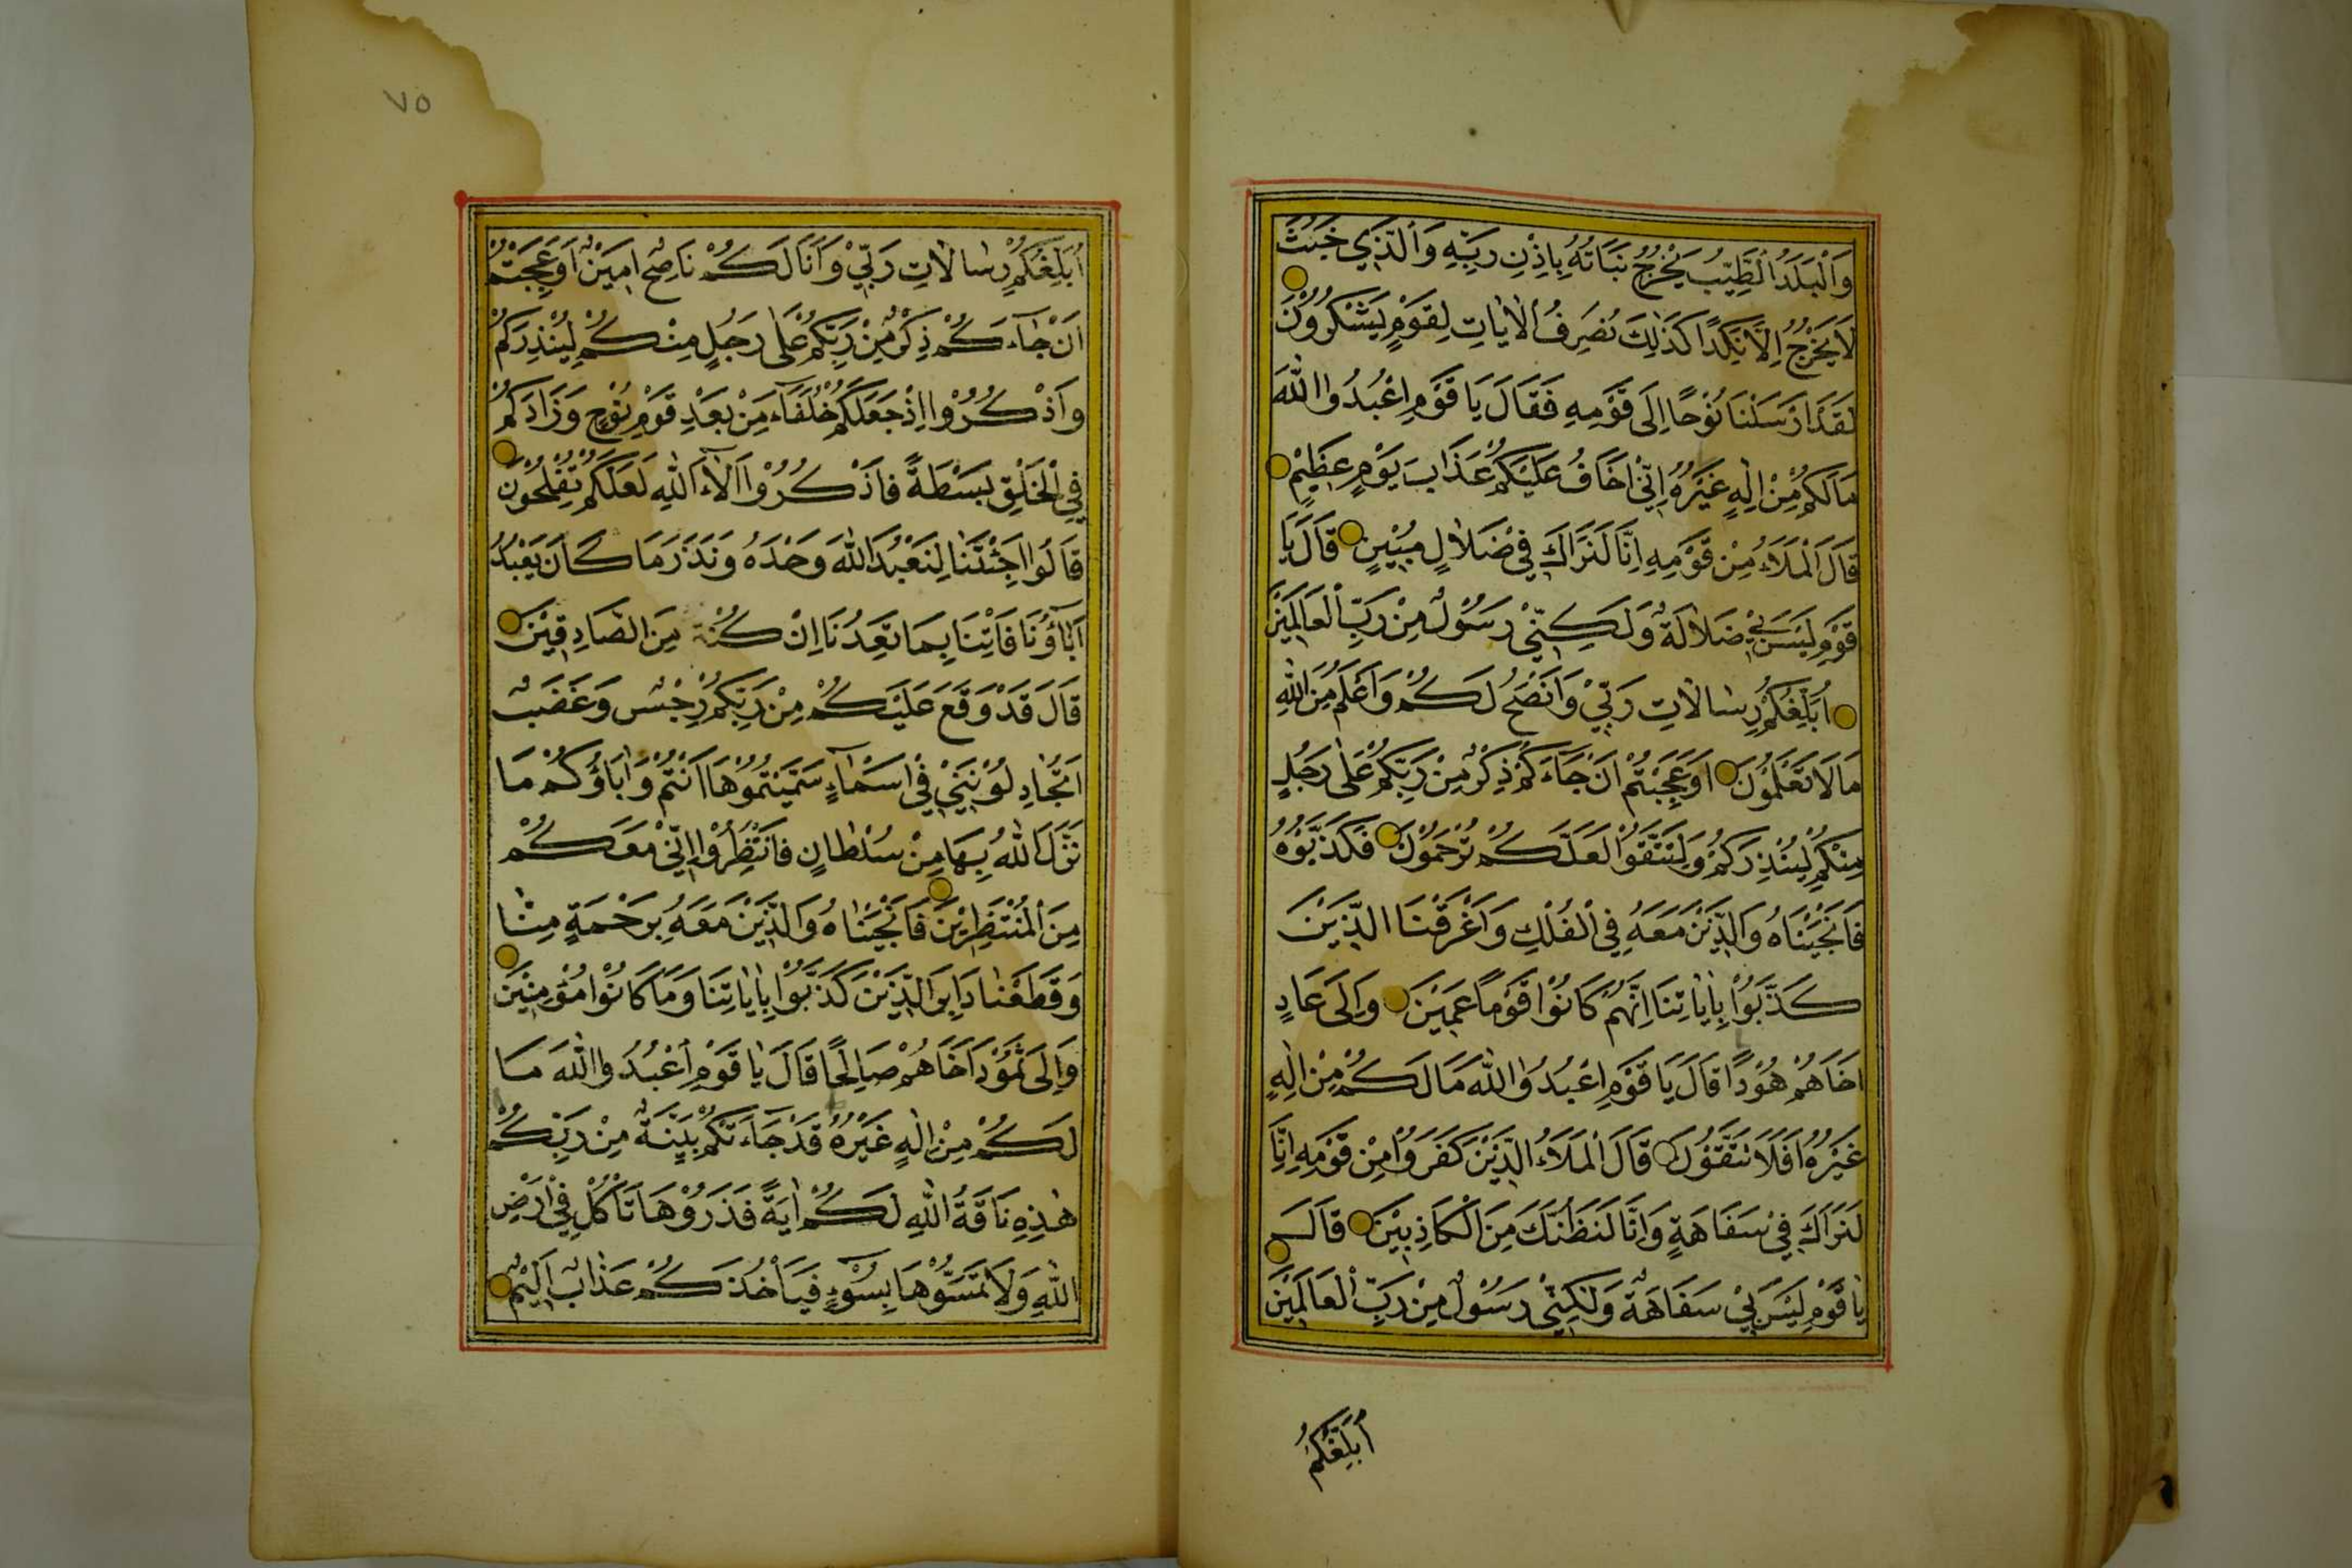 وَالْبَلَدُ الطَّيِّبُ يَخْرُجُ نَبَاتُهُ بِاِذْنِ رَبِّهِ وَالَّذِي خَبُثَ
لَا يَخْرُجُ اِلَّا نَكِدًا كَذٰلِكَ نُصَرِّفُ الْاٰيَاتِ لِقَوْمٍ يَشْكُرُونَ
لَقَدْ اَرْسَلْنَا نُوْحًا اِلَى قَوْمِهِ فَقَالَ يَا قَوْمِ اعْبُدُوا اللّٰهَ
مَا لَكُمْ مِنْ اِلٰهٍ غَيْرُهُ اِنِّيْ اَخَافُ عَلَيْكُمْ عَذَابَ يَوْمٍ عَظِيْمٍ
قَالَ الْمَلَاُ مِنْ قَوْمِهِ اِنَّا لَنَرَاكَ فِيْ ضَلَالٍ مُبِيْنٍ قَالَ يَا
قَوْمِ لَيْسَ بِيْ ضَلَالَةٌ وَلٰكِنِّيْ رَسُوْلٌ مِنْ رَبِّ الْعَالَمِيْنَ
اُبَلِّغُكُمْ رِسَالَاتِ رَبِّيْ وَاَنْصَحُ لَكُمْ وَاَعْلَمُ مِنَ اللّٰهِ
مَا لَا تَعْلَمُوْنَ اَوَعَجِبْتُمْ اَنْ جَاءَكُمْ ذِكْرٌ مِنْ رَبِّكُمْ عَلٰى رَجُلٍ
مِنْكُمْ لِيُنْذِرَكُمْ وَلِتَتَّقُوْا لَعَلَّكُمْ تُرْحَمُوْنَ فَكَذَّبُوْهُ
فَاَنْجَيْنَاهُ وَالَّذِيْنَ مَعَهُ فِي الْفُلْكِ وَاَغْرَقْنَا الَّذِيْنَ
كَذَّبُوْا بِاٰيَاتِنَا اِنَّهُمْ كَانُوْا قَوْمًا عَمِيْنَ وَاِلَى عَادٍ
اَخَاهُمْ هُوْدًا قَالَ يَا قَوْمِ اعْبُدُوا اللّٰهَ مَا لَكُمْ مِنْ اِلٰهٍ
غَيْرُهُ اَفَلَا تَتَّقُوْنَ قَالَ الْمَلَاُ الَّذِيْنَ كَفَرُوْا مِنْ قَوْمِهِ اِنَّا
لَنَرَاكَ فِيْ سَفَاهَةٍ وَاِنَّا لَنَظُنُّكَ مِنَ الْكَاذِبِيْنَ قَالَ
يَا قَوْمِ لَيْسَ بِيْ سَفَاهَةٌ وَلٰكِنِّيْ رَسُوْلٌ مِنْ رَبِّ الْعَالَمِيْنَ
اُبَلِّغُكُمْ
٧٥
اُبَلِّغُكُمْ رِسَالَاتِ رَبِّيْ وَاَنَا لَكُمْ نَاصِحٌ اَمِيْنٌ اَوَعَجِبْتُمْ
اَنْ جَاءَكُمْ ذِكْرٌ مِنْ رَبِّكُمْ عَلٰى رَجُلٍ مِنْكُمْ لِيُنْذِرَكُمْ
وَاذْكُرُوْا اِذْ جَعَلَكُمْ خُلَفَاءَ مِنْ بَعْدِ قَوْمِ نُوْحٍ وَزَادَكُمْ
فِي الْخَلْقِ بَسْطَةً فَاذْكُرُوْا اٰلَاءَ اللّٰهِ لَعَلَّكُمْ تُفْلِحُوْنَ
قَالُوا اَجِئْتَنَا لِنَعْبُدَ اللّٰهَ وَحْدَهُ وَنَذَرَ مَا كَانَ يَعْبُدُ
اٰبَاؤُنَا فَاْتِنَا بِمَا تَعِدُنَا اِنْ كُنْتَ مِنَ الصَّادِقِيْنَ
قَالَ قَدْ وَقَعَ عَلَيْكُمْ مِنْ رَبِّكُمْ رِجْسٌ وَغَضَبٌ
اَتُجَادِلُوْنَنِيْ فِيْ اَسْمَاءٍ سَمَّيْتُمُوْهَا اَنْتُمْ وَاٰبَاؤُكُمْ مَا
نَزَّلَ اللّٰهُ بِهَا مِنْ سُلْطَانٍ فَانْتَظِرُوْا اِنِّيْ مَعَكُمْ
مِنَ الْمُنْتَظِرِيْنَ فَاَنْجَيْنَاهُ وَالَّذِيْنَ مَعَهُ بِرَحْمَةٍ مِنَّا
وَقَطَعْنَا دَابِرَ الَّذِيْنَ كَذَّبُوْا بِاٰيَاتِنَا وَمَا كَانُوْا مُؤْمِنِيْنَ
وَاِلَى ثَمُوْدَ اَخَاهُمْ صَالِحًا قَالَ يَا قَوْمِ اعْبُدُوا اللّٰهَ مَا
لَكُمْ مِنْ اِلٰهٍ غَيْرُهُ قَدْ جَاءَتْكُمْ بَيِّنَةٌ مِنْ رَبِّكُمْ
هٰذِهِ نَاقَةُ اللّٰهِ لَكُمْ اٰيَةً فَذَرُوْهَا تَاْكُلْ فِيْ اَرْضِ
اللّٰهِ وَلَا تَمَسُّوْهَا بِسُوْءٍ فَيَاْخُذَكُمْ عَذَابٌ اَلِيْمٌ